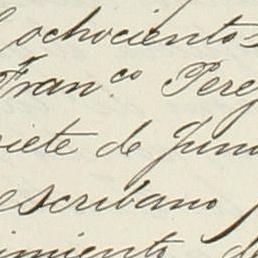 ochocientos
Fran.co Pere
siete de Juni
escribano
imiento de